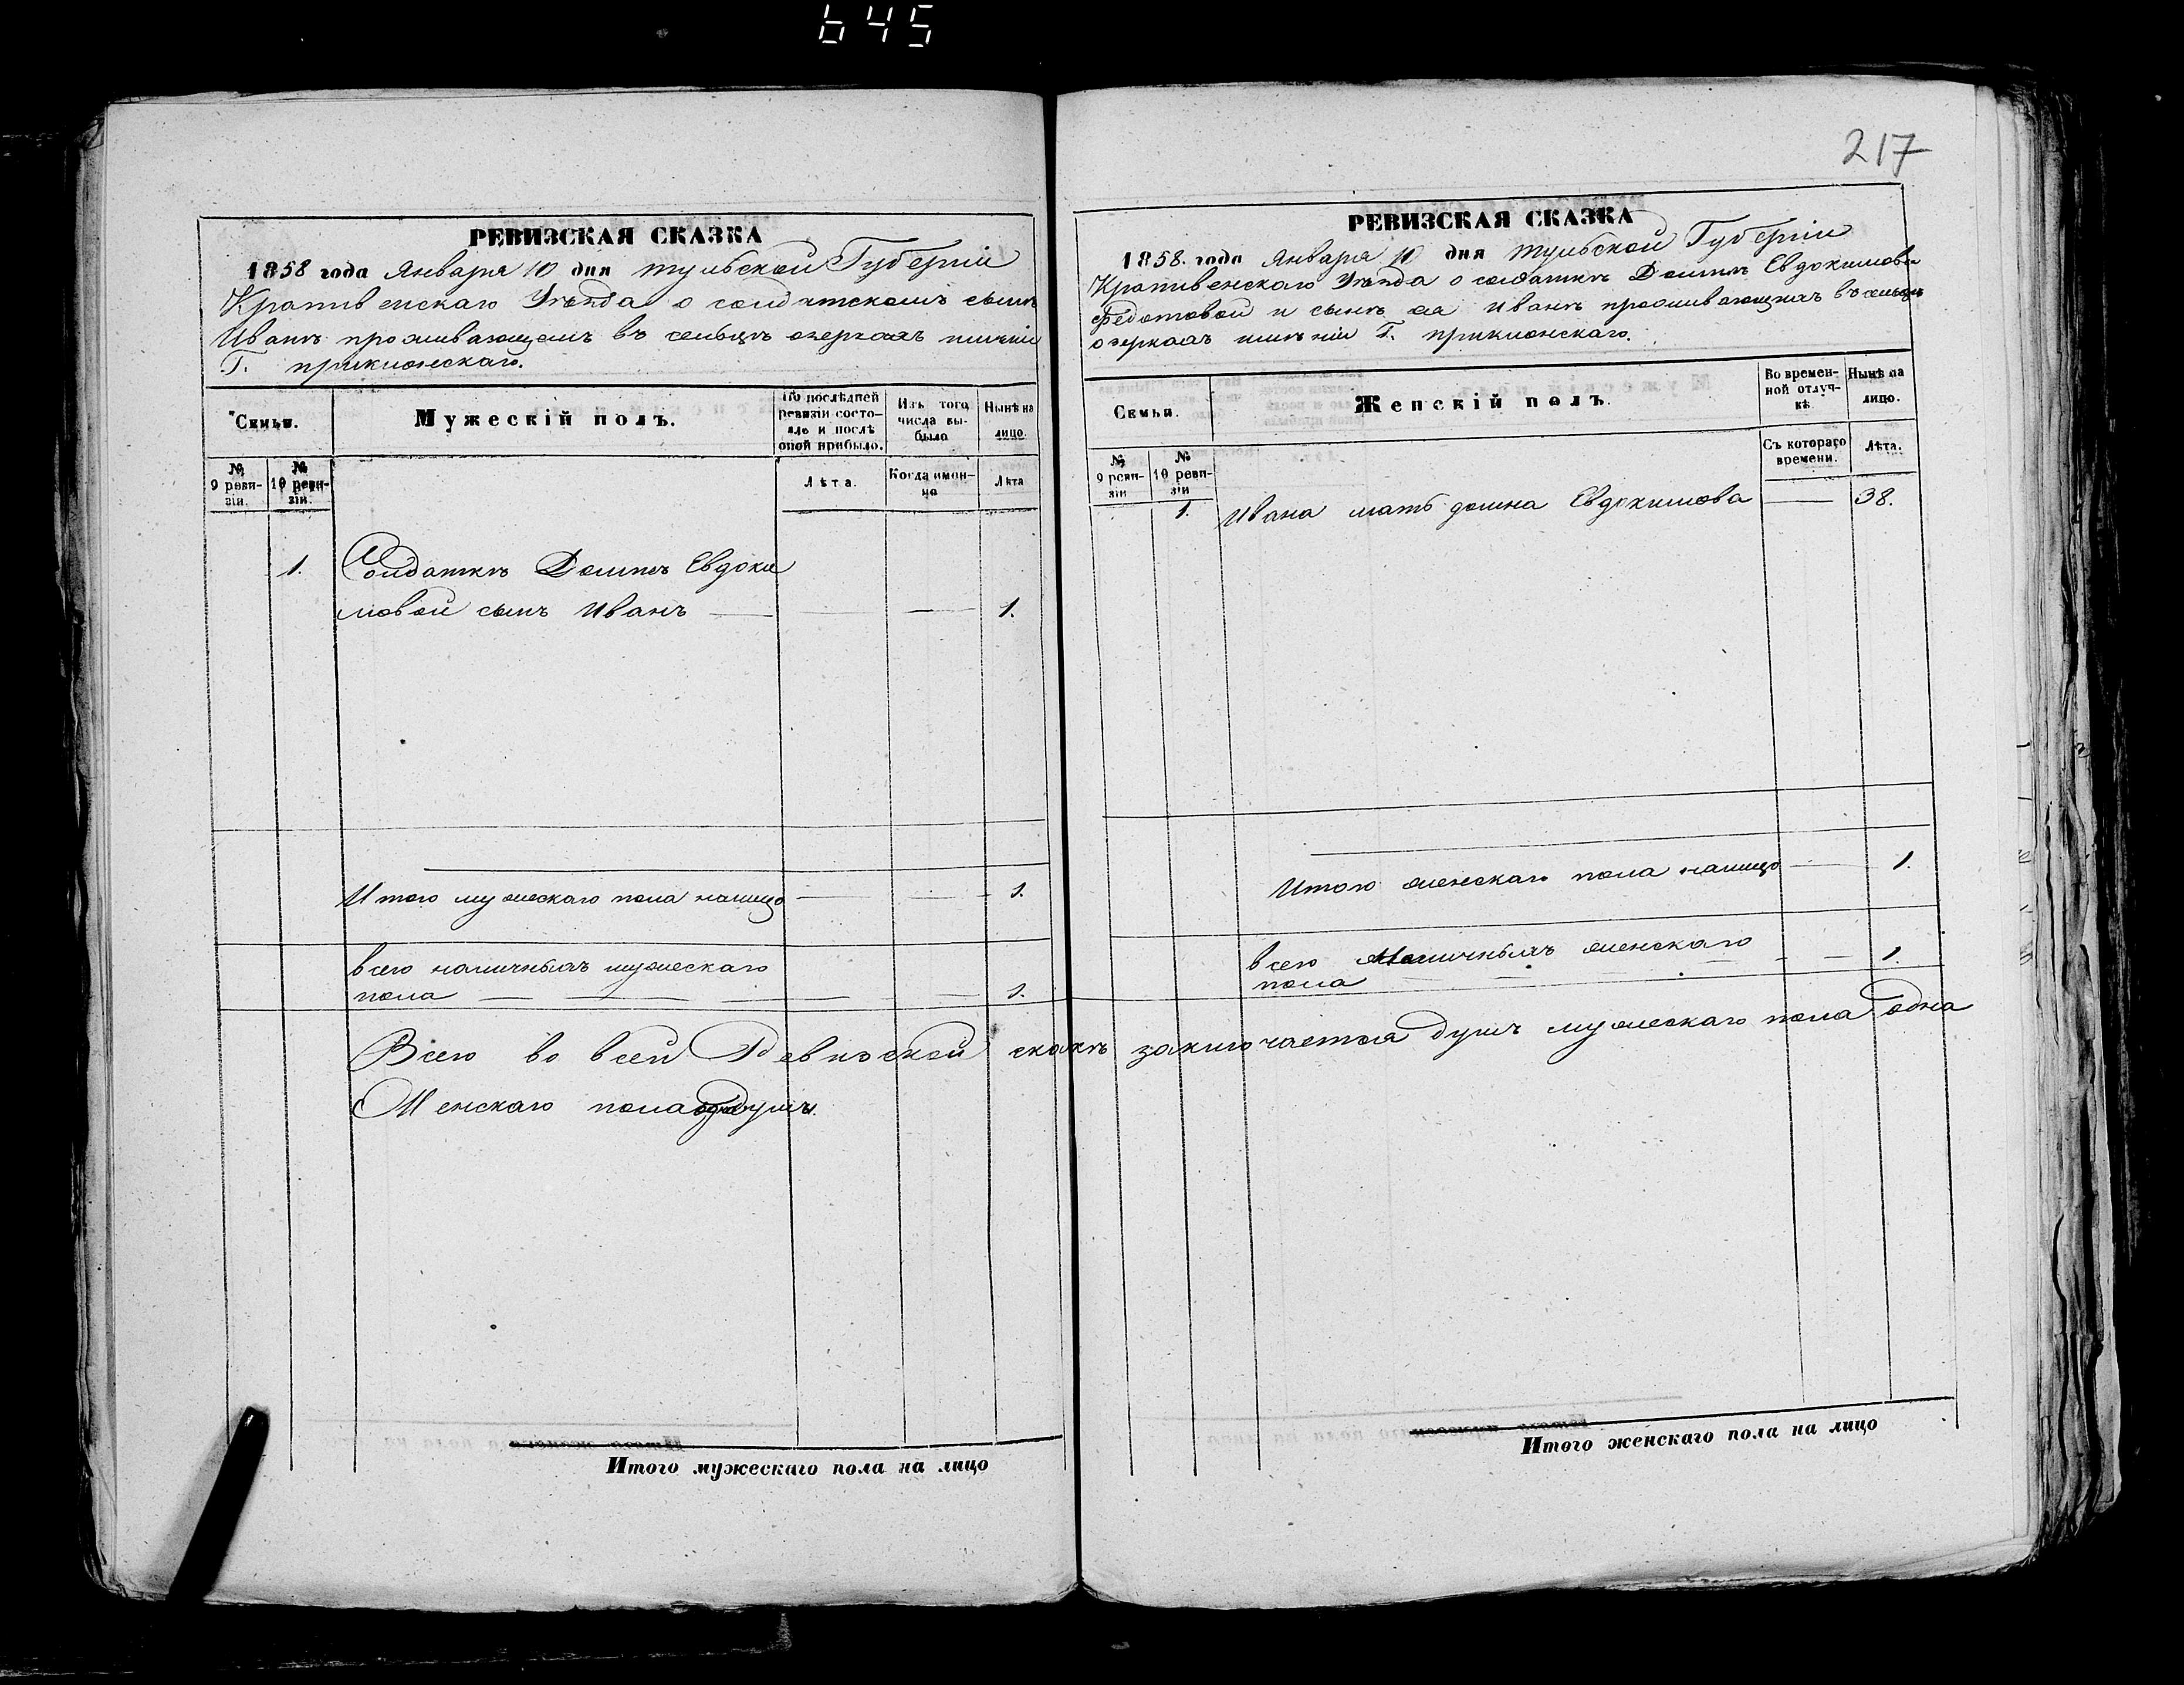 645
217
РЕВИЗСКАЯ СКАЗКА
1858 года Января 10 дня тульской Губерніи
Крапивенскаго Уѣзда о солдатскомъ сынѣ
Иванѣ проживающемъ въ сельцѣ озеркахъ имѣніи
Г. приклонскаго.
Семьи.
Мужескій полъ.
По послѣдней ревизіи состояло и послѣ оной прибыло.
Изъ того числа выбыло
Нынѣ на лицо.
№ 9 ревизіи.
№ 10 ревизіи.
Лѣта.
Когда именно
Лѣта
1. Солдаткѣ Домнѣ Евдоки
мовой сынъ Иванъ — — — 1.
Итого мужескаго пола налицо — — 1.
всего наличныхъ мужескаго
пола — — — — — 1.
Всего во всей Ревизской скаскѣ заключается душъ мужескаго пола одна
Женскаго пола душъ.
Итого мужескаго пола на лицо
РЕВИЗСКАЯ СКАЗКА
1858. года Января 10 дня тульской Губерніи
Крапивенскаго Уѣзда о солдаткѣ Домнѣ Евдокимовой
Федотовой и сынѣ ея Иванѣ проживающихъ въ сельцѣ
озеркахъ имѣніи Г. приклонскаго.
Семьи.
Женскій полъ.
Во временной отлучкѣ.
Нынѣ на лицо.
№ 9 ревизіи
№ 10 ревизіи
Съ котораго времени.
Лѣта.
1. Ивана мать домна Евдокимова — 38.
Итого женскаго пола налицо — 1.
всего Наличныхъ женскаго
пола — — — 1.
Итого женскаго пола на лицо